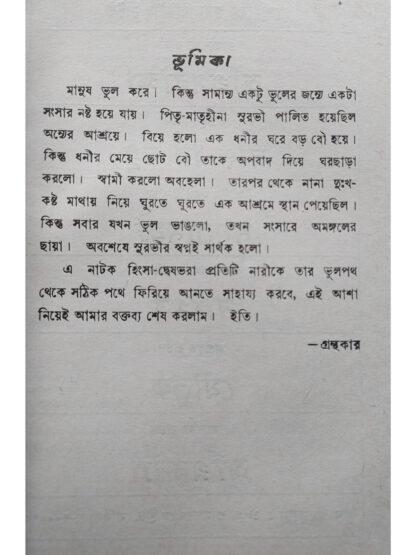 ভূমিকা
মানুষ ভুল করে। কিন্তু সামান্য একটু ভুলের জন্যে একটা
সংসার নষ্ট হয়ে যায়। পিতৃ-মাতৃহীনা সুরভী পালিত হয়েছিল
অন্যের আশ্রয়ে। বিয়ে হলো এক ধনীর ঘরে বড় বৌ হয়ে।
কিন্তু ধনীর মেয়ে ছোট বৌ তাকে অপবাদ দিয়ে ঘরছাড়া
করলো। স্বামী করলো অবহেলা। তারপর থেকে নানা দুঃখ-
কষ্ট মাথায় নিয়ে ঘুরতে ঘুরতে এক আশ্রমে স্থান পেয়েছিল।
কিন্তু সবার যখন ভুল ভাঙলো, তখন সংসারে অমঙ্গলের
ছায়া। অবশেষে সুরভীর স্বপ্নই সার্থক হলো।
এ নাটক হিংসা-দ্বেষভরা প্রতিটি নারীকে তার ভুলপথ
থেকে সঠিক পথে ফিরিয়ে আনতে সাহায্য করবে, এই আশা
নিয়েই আমার বক্তব্য শেষ করলাম। ইতি।
—গ্রন্থকার